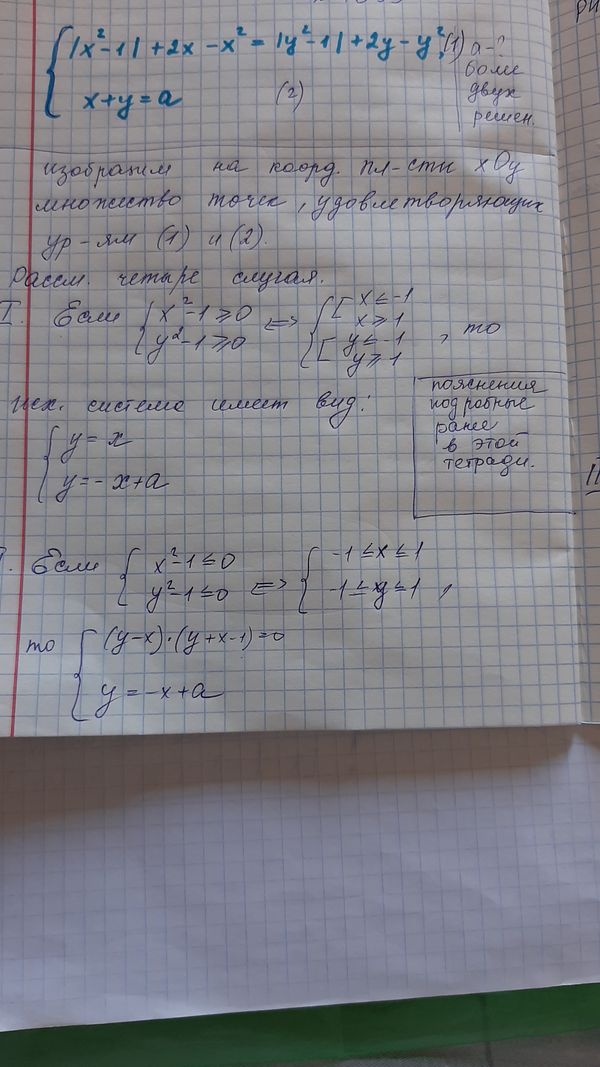 { |x²-1| + 2x - x² = |y²-1| + 2y - y², (1)
x + y = a (2)
а-?
более
двух
решен.
изобразим на коорд. пл-сти xOy
множество точек, удовлетворяющих
ур-ям (1) и (2).
Рассм. четыре случая.
I. Если { x²-1≥0 y²-1≥0 ⇔ { [ x≤-1 x≥1 [ y≤-1 y≥1 , то
исх. система имеет вид:
{ y = x
y = -x+a
пояснения
подробные
ранее
в этой
тетради.
Если { x²-1≤0 y²-1≤0 ⇔ { -1≤x≤1 -1≤y≤1 ,
то { (y-x)·(y+x-1)=0
y = -x+a
II